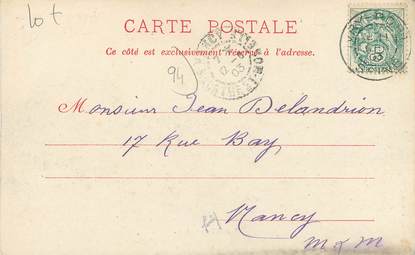 lot
CARTE POSTALE
Ce côté est exclusivement réservé à l'adresse.
94
Monsieur Jean Delandrion
17 Rue Bay
Nancy
M & M